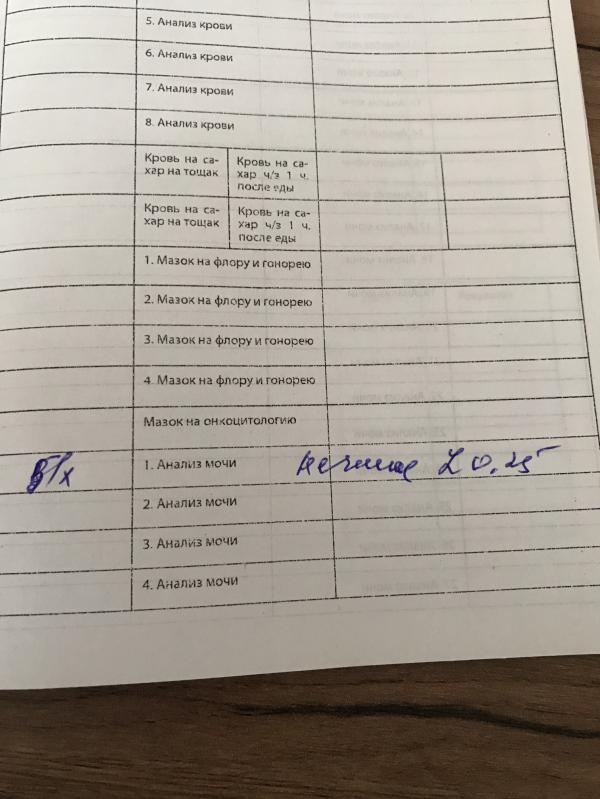 5. Анализ крови
6. Анализ крови
7. Анализ крови
8. Анализ крови
Кровь на са-
хар на тощак
Кровь на са-
хар ч/з 1 ч.
после еды
Кровь на са-
хар на тощак
Кровь на са-
хар ч/з 1 ч.
после еды
1. Мазок на флору и гонорею
2. Мазок на флору и гонорею
3. Мазок на флору и гонорею
4. Мазок на флору и гонорею
Мазок на онкоцитологию
1. Анализ мочи L 0,25
2. Анализ мочи
3. Анализ мочи
4. Анализ мочи